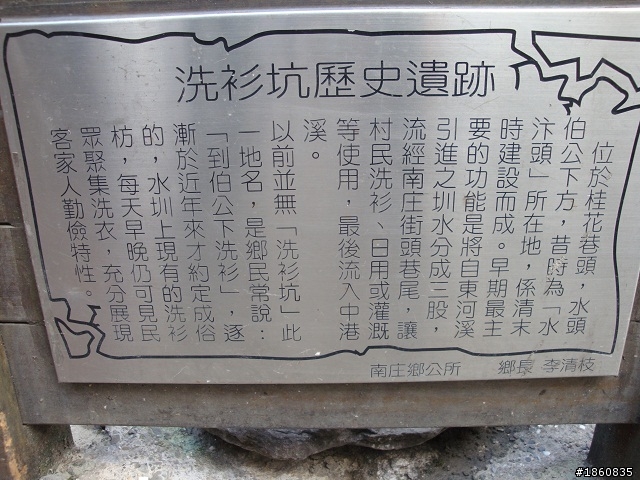 洗衫坑歷史遺跡
位於桂花巷頭，水頭
伯公下方，昔時為「水
汴頭」所在地，係清末
時建設而成。早期最主
要的功能是將自東河溪
引進之圳水分成三股，
流經南庄街頭巷尾，讓
村民洗衫、日用或灌溉
等使用，最後流入中港
溪。
以前並無「洗衫坑」此
一地名，是鄉民常說：
「到伯公下洗衫」，逐
漸於近年來才約定成俗
的，水圳上現有的洗衫
枋，每天早晚仍可見民
眾聚集洗衣，充分展現
客家人勤儉特性。
南庄鄉公所 鄉長 李清枝
#1860835